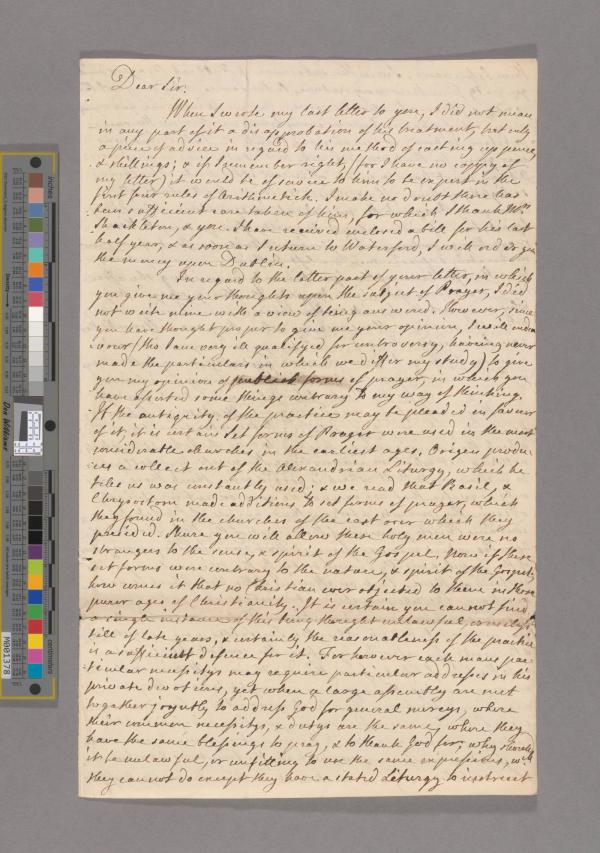 Dear Sir.
When I wrote my last letter to you, I did not mean
in any part of it a disapprobation of his treatment, but only
a piece of advice in regard to his method of casting up pence,
& shillings; & if I remember right, (for I have no coppy of
my letter) it would be of service to him to be expert in the
first four rules of Arithmetick. I make no doubt there has
been sufficient care taken of him, for which I thank Mrs
Shackleton, & you. I have received enclosed a bill for his last
half year, & as soon as I return to Waterford, I will order you
the money upon Dublin.
In regard to the latter part of your letter, in which
you give me your thoughts upon the subject of Prayer, I did
not write mine with a view of being answered. However, since
you have thought proper to give me your opinion, I will endea
vour (tho I am very ill qualified for controversy, having never
made the particulars in which we differ my study) to give
you my opinion of publick forms of prayer, in which you
have asserted some things contrary to my way of thinking.
If the antiquity, of the practice may be pleaded in favour
of it, it is certain set forms of Prayer were used in the most
considerable churches in the earliest ages, Origen produ
ces a collect out of the Alexandrian Liturgy, which he
tells us was constantly used; & we read that Basil, &
Chrysostom made additions to set forms of prayer, which
they found in the churches of the east over which they
presided. Shure you will allow these holy men were no
strangers to the sense, & spirit of the Gospel, Now if these
set forms were contrary to the nature, & spirit of the Gospel,
how comes it that no Christian ever objected to them in those
purer ages of Christianity. It is certain you can not find
a single instance of this being thought unlawful, or useless
till of late years, & certainly the reasonableness of the practice
is a sufficient defence for it. For however each mans par
ticular necessitys may require particular addresses in his
private devotions, yet when a large assembly are met
together joyntly to address God for general mercys, where
their common necessitys, & dutys are the same, where they
have the same blessings to pray, & to thank God for, why should
it be unlawful, or unfitting to use the same expressions, wch
they can not do except they have a stated Liturgy to instruct
M001378
inches
centimeters
Don Williams